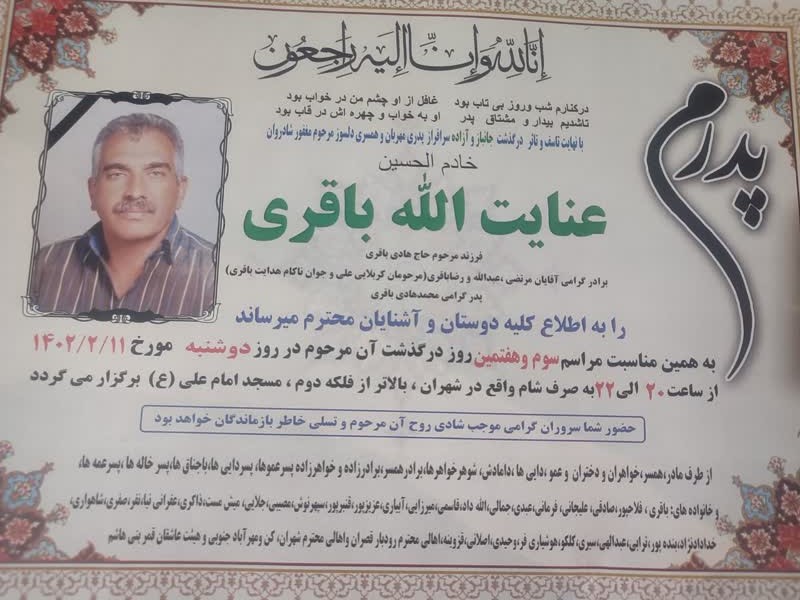 انا لله و انا الیه راجعون
پدرم
درکنارم شب وروز بی تاب بود غافل از او چشم من در خواب بود
تاشدیم بیدار و مشتاق پدر او به خواب و چهره اش در قاب بود
با نهایت تاسف و تاثر درگذشت جانباز و آزاده سرافراز پدری مهربان و همسری دلسوز مرحوم مغفور شادروان
خادم الحسین
عنایت الله باقری
فرزند مرحوم حاج هادی باقری
برادر گرامی آقایان مرتضی ،عبدالله و رضاباقری(مرحومان کربلایی علی و جوان ناکام هدایت باقری)
پدر گرامی محمدهادی باقری
را به اطلاع کلیه دوستان و آشنایان محترم میرساند
به همین مناسبت مراسم سوم وهفتمین روز درگذشت آن مرحوم در روز دوشنبه مورخ ۱۴۰۲/۲/۱۱
از ساعت ۲۰ الی ۲۲ به صرف شام واقع در شهران ، بالاتر از فلکه دوم ، مسجد امام علی (ع) برگزار می گردد
حضور شما سروران گرامی موجب شادی روح آن مرحوم و تسلی خاطر بازماندگان خواهد بود
از طرف مادر،همسر،خواهران و دختران و عمو ،دایی ها ،دامادش، شوهرخواهرها،برادرهمسر،برادرزاده و خواهرزاده پسرعموها، پسردایی ها،باجناق ها،پسر خاله ها ،پسرعمه ها،
و خانواده های: باقری ، فلاحپور،صادقی، علیجانی، فرمانی،عبدی،جمالی،الله داد،قاسمی،میرزایی،آبیاری،عزیزپور،قنبرپور،سپهرنوش،مصیبی،جلایی، میش مست،ذاکری،عفرانی نیا،نقر،صفری،شاهواری،
خدادادنژاد،بنده پور،ترابی،عبدالهی،سیری،کلکو،هوشیاری فر،وحیدی،اصلانی،قزوینه،اهالی محترم رودبار قصران واهالی محترم شهران، کن ومهرآباد جنوبی و هیئت عاشقان قمر بنی هاشم